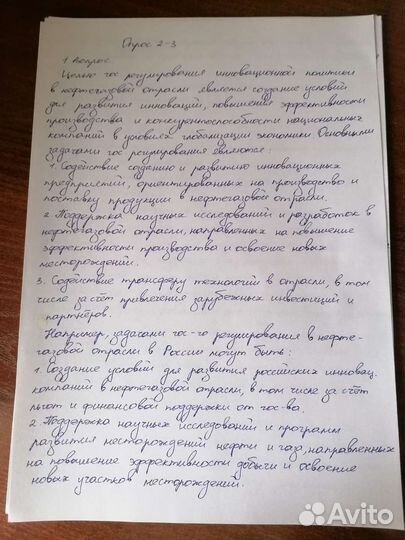 Опрос 2-3
1 вопрос
Целью гос регулирования инновационной политики
в нефтегазовой отрасли является создание условий
для развития инноваций, повышения эффективности
производства и конкурентоспособности национальных
компаний в условиях глобализации экономики. Основными
задачами гос регулирования являются:
1. Содействие созданию и развитию инновационных
предприятий, ориентированных на производство и
поставку продукции в нефтегазовой отрасли.
2. Поддержка научных исследований и разработок в
нефтегазовой отрасли, направленных на повышение
эффективности производства и освоение новых
месторождений.
3. Содействие трансферу технологий в отрасли, в том
числе за счёт привлечения зарубежных инвестиций и
партнёров.
Например, задачами гос-го регулирования в нефте-
газовой отрасли в России могут быть:
1. Создание условий для развития российских инновац.
компаний в нефтегазовой отрасли, в том числе за счёт
льгот и финансовой поддержки от гос-ва.
2. Поддержка научных исследований и программ
развития месторождений нефти и газа, направленных
на повышение эффективности добычи и освоение
новых участков месторождений.
Avito